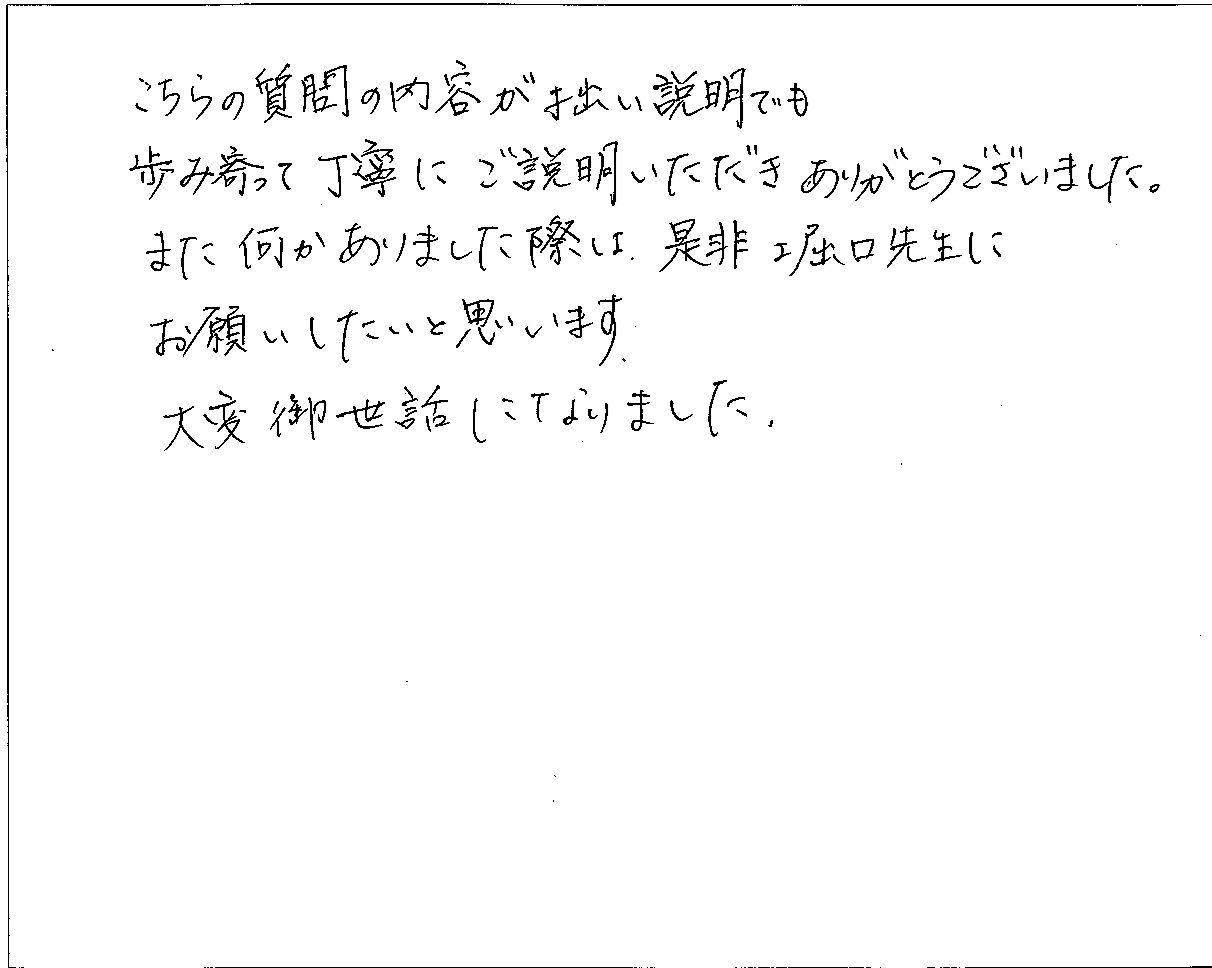 こちらの質問の内容が拙い説明でも
歩み寄って丁寧にご説明いただきありがとうございました。
また何かありました際は、是非堀口先生に
お願いしたいと思います。
大変御世話にてなりました。